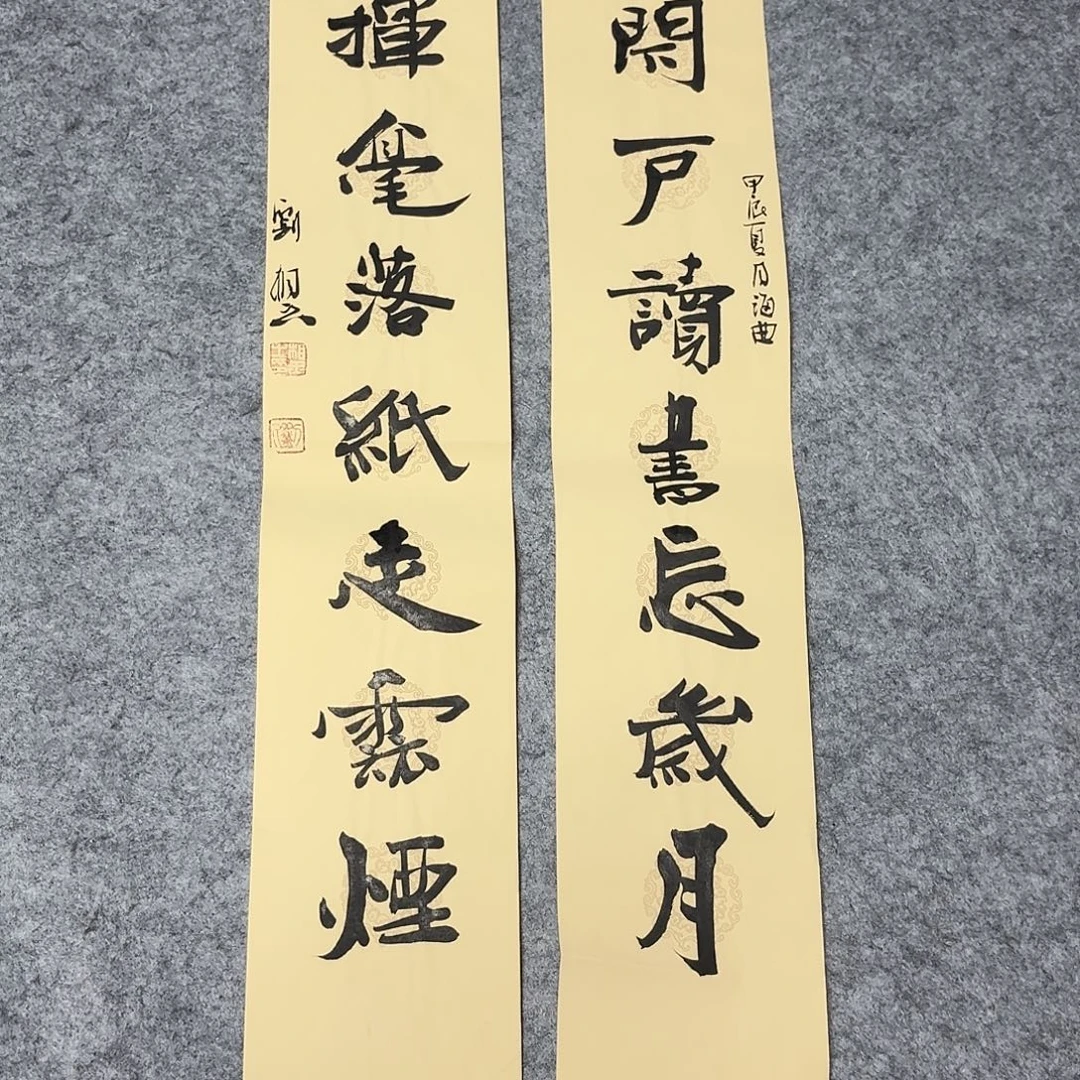 閉户讀書忘歲月
甲辰夏月海曲
揮毫落紙走雲煙
劉